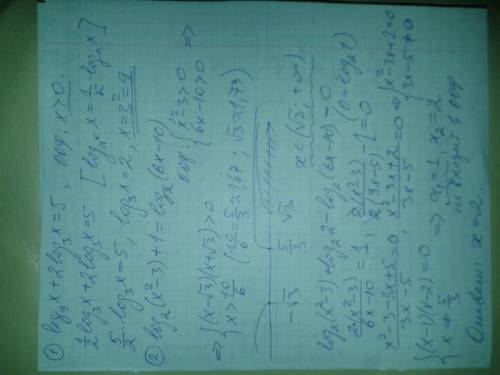 ① log₉x + 2log₃x = 5, ООФ: x>0.
½ log₃x + 2log₃x = 5 [log_{aᵏ}x = 1/k · log_a x]
5/2 · log₃x = 5, log₃x = 2, x = 3² = 9.
② log₂(x²-3)+1 = log₂(6x-10)
ООФ: { x²-3>0
6x-10>0 ⇒
⇒ { (x-√3)(x+√3)>0
x > 10/6 (10/6 = 5/3 ≈ 1,67; √3 ≈ 1,73)
-√3 5/3 √3 x∈(√3; +∞).
log₂(x²-3)+log₂2 - log₂(6x-10) = 0 (0 = log₂1)
2(x²-3)/(6x-10) = 1, 2(x²-3)/2(3x-5) - 1 = 0
(x²-3-3x+5)/(3x-5) = 0, (x²-3x+2)/(3x-5) = 0 ⇔ { x²-3x+2=0
3x-5≠0
{ (x-1)(x-2) = 0
x ≠ 5/3 ⇒ x₁=1, x₂=2
не входит в ООФ
Ответ: x=2.